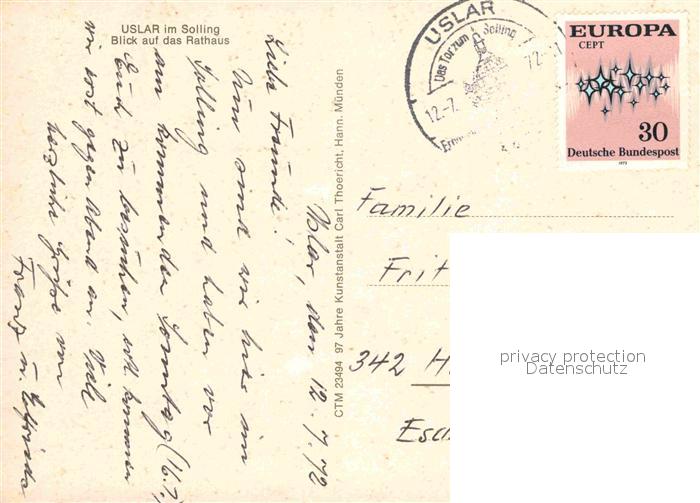 USLAR im Solling
Blick auf das Rathaus
Uslar, den 12.7.72
Liebe Freunde!
Nun sind wir hier im
Solling und haben vor
am kommenden Sonntag (16.7.)
Euch zu besuchen,
wir erst gegen Abend an. Viele
herzliche Grüße von
Franz u. Elfriede
CTM 23494 97 Jahre Kunstanstalt Carl Thoericht, Hann. Münden
USLAR
Das Tor zum Solling
12.-7.
EUROPA
CEPT
30
Deutsche Bundespost
1972
Familie
Frit
342 H
Esc
privacy protection
Datenschutz